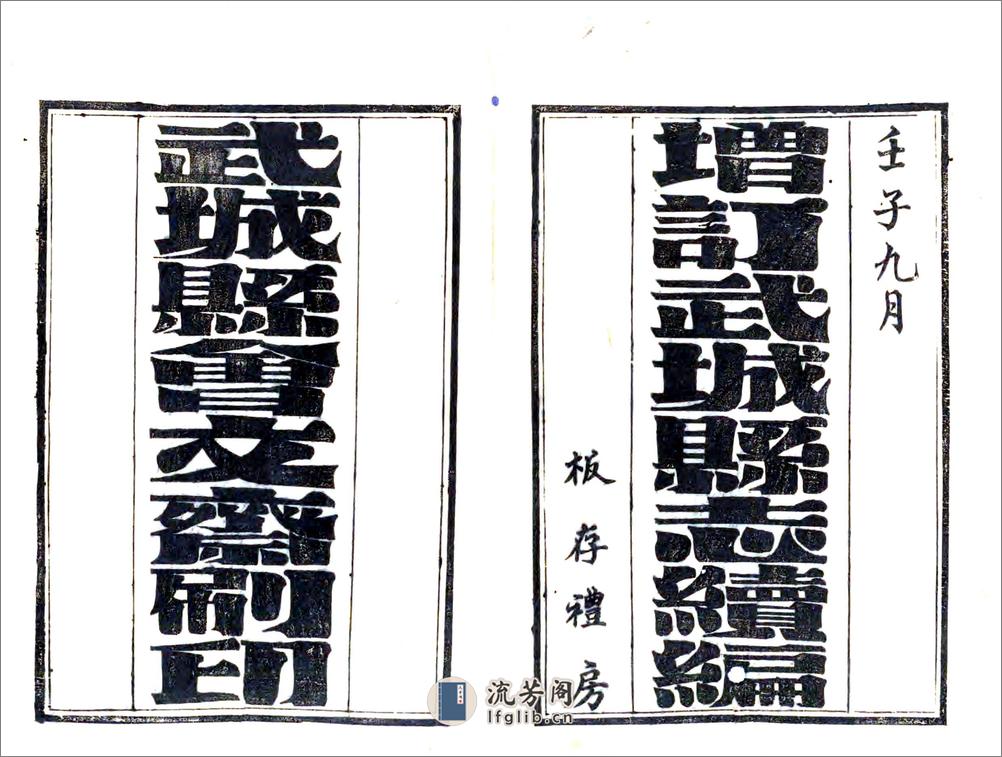 壬子九月
增訂武城縣志續編
板存禮房
武城縣會文齋刷印
流芳阁
lfglib.cn